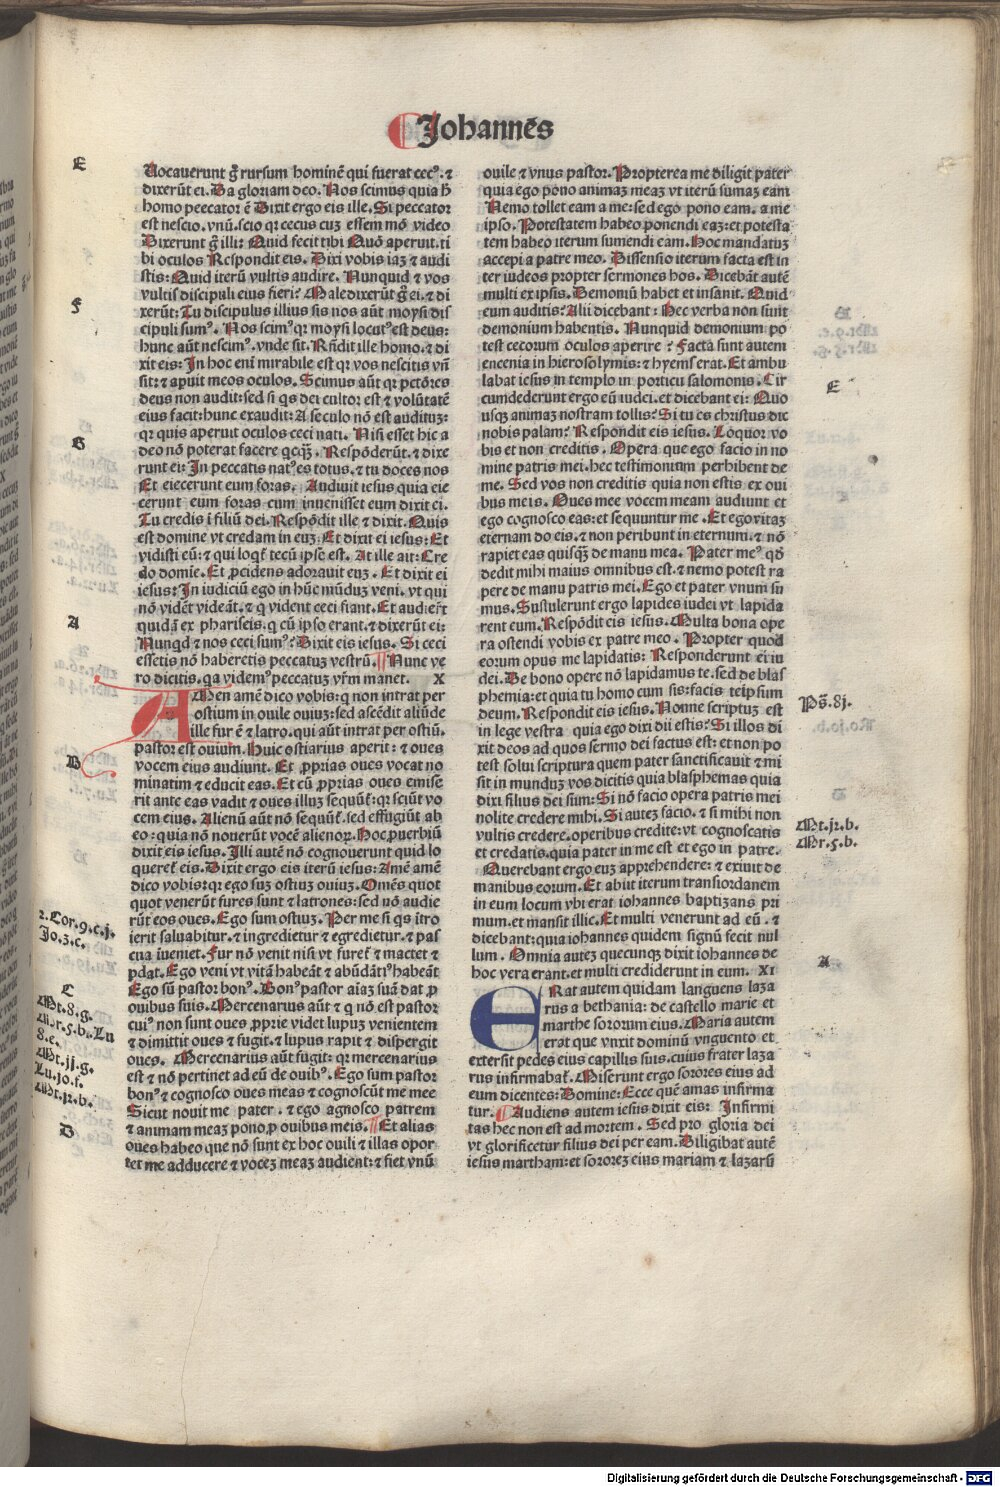 Johannes
E
Uocauerunt g̃ rursum hominē qui fuerat cecꝰ. ⁊
dixerūt ei. Da gloriam deo. Nos scimus quia h̄
homo peccator ē Dixit ergo eis ille. Si peccator
est nescio. vnū.scio qꝛ cecus cuꝫ essem mō video
Dixerunt g̃ illi: Quid fecit tibi Quō aperuit.ti
bi oculos Respondit eis. Dixi vobis iaꝫ ⁊ audi
stis: Quid iterū vultis audire. Nunquid ⁊ vos
vultis discipuli eius fieri? Maledixerūt g̃ ei. ⁊ di
f
xerūt: Tu discipulus illius sis nos aūt moysi dis
cipuli sumꝰ. Nos scimꝰqꝛ moysi locutꝰest deus:
hunc aūt nescimꝰ.vnde sit. Rn̄dit ille homo. ⁊ di
xit eis: In hoc eni mirabile est qꝛ vos nescitis vn̄
sit: ⁊ apuit meos oculos. Scimus aūt qꝛ pctōres
deus non audit: sed si qs dei cultor est ⁊ volūtatē
eius facit: hunc exaudit: A seculo nō est audituꝫ:
qꝛ quis aperuit oculos ceci nati. Nisi esset hic a
G
deo nō poterat facere qcꝗ̄. Respōderūt. ⁊ dixe
runt ei: In peccatis natꝰes totus. ⁊ tu doces nos
Et eiecerunt eum foras. Audiuit iesus quia eie
cerunt eum foras cum inuenisset eum dixit ei.
Tu credis ī filiū dei. Respōdit ille ⁊ dixit. Quis
est domine vt credam in euꝫ. Et dixit ei iesus: Et
vidisti eū: ⁊ qui loqt̄ tecū ipse est. At ille ait: Cre
do domie. Et ꝓcidens adorauit euꝫ. Et dixit ei
iesus: In iudiciū ego in hūc mūduꝫ veni. vt qui
nō vidēt videāt. ⁊ q vident ceci fiant. Et audierūt
A
quidā ex phariseis. q cū ipso erant. ⁊ dixerūt ei:
Nunqd ⁊ nos ceci sumꝰ? Dixit eis iesus. Si ceci
essetis nō haberetis peccatuꝫ vestrū. Nunc ve
ro dicitis.qa videmꝰ peccatuꝫ vr̄m manet. X
AMen amē dico vobis: q non intrat per
ostium in ouile ouiuꝫ: sed ascēdit aliūde
ille fur ē ⁊ latro.qui aūt intrat per ostiū.
pastor est ouium. Huic ostiarius aperit: ⁊ oues
B
vocem eius audiunt. Et ꝓprias oues vocat no
minatim ⁊ educit eas. Et cū ꝓprias oues emise
rit ante eas vadit ⁊ oues illuꝫ sequūt̄: qꝛ sciūt vo
cem eius. Alienū aūt nō sequūt̄. sed effugiūt ab
eo: quia nō nouerūt vocē alienoꝝ. Hoc ꝓuerbiū
dixit eis iesus. Illi autē nō cognouerunt quid lo
queret̄ eis. Dixit ergo eis iterū iesus: Amē amē
dico vobis: qꝛ ego suꝫ ostiuꝫ ouiuꝫ. Omēs quot
quot venerūt fures sunt ⁊ latrones: sed nō audie
2.Cor.9.c.j.
rūt eos oues. Ego sum ostiuꝫ. Per me si qs ītro
Jo.3.c.
ierit saluabitur. ⁊ ingredietur ⁊ egredietur. ⁊ pas
cua iueniet. Fur nō venit nisi vt furet̄ ⁊ mactet ⁊
pdat. Ego veni vt vitā habeāt ⁊ abūdātiꝰhabeāt
C
Ego sū pastor bonꝰ. Bonꝰpastor aiaꝫ suā dat ꝓ
Mt.8.g.
ouibus suis. Mercenarius aūt ⁊ q nō est pastor
Mr.5.b.Lu
cuiꝰ non sunt oues ꝓprie videt lupuꝫ venientem
8.e.
⁊ dimittit oues ⁊ fugit. ⁊ lupus rapit ⁊ dispergit
Mt.jj.g.
oues. Mercenarius aūt fugit: qꝛ mercenarius
Lu.jo.f.
est ⁊ nō pertinet ad eū de ouibꝰ. Ego sum pastor
Mt.jz.b.
bonꝰ ⁊ cognosco oues meas ⁊ cognoscūt me mee
Sicut nouit me pater. ⁊ ego agnosco patrem
D
⁊ animam meaꝫ pono ꝓ ouibus meis. Et alias
oues habeo que nō sunt ex hoc ouili ⁊ illas opor
tet me adducere ⁊ voceꝫ meaꝫ audient: ⁊ fiet vnū
ouile ⁊ vnus pastor. Propterea me diligit pater
quia ego pono animaꝫ meaꝫ vt iterū sumaꝫ eam
Nemo tollet eam a me: sed ego pono eam. a me
ipso. Potestatem habeo ponendi eaꝫ: et potesta
tem habeo iterum sumendi eam. Hoc mandatuꝫ
accepi a patre meo. Dissensio iterum facta est in
ter iudeos propter sermones hos. Dicebāt autē
multi ex ipsis. Demoniū habet et insanit. Quid
eum auditis? Alii dicebant: Hec verba non sunt
demonium habentis. Nunquid demonium po
test cecorum oculos aperire? Facta sunt autem
encenia in hierosolymis: ⁊ hyems erat. Et ambu
E
labat iesus in templo in porticu salomonis. Cir
cumdederunt ergo eū iudei. et dicebant ei: Quo
usqꝫ animaꝫ nostram tollis? Si tu es christus dic
nobis palam? Respondit eis iesus. Loquor vo
bis et non creditis. Opera que ego facio in no
mine patris mei. hec testimonium perhibent de
me. Sed vos non creditis quia non estis ex oui
bus meis. Oues mee vocem meam audiunt et
ego cognosco eas: et sequuntur me. Et ego vitaꝫ
eternam do eis. ⁊ non peribunt in eternum. ⁊ nō
rapiet eas quisꝗ̄ de manu mea. Pater meꝰ qd̄
dedit mihi maius omnibus est. ⁊ nemo potest ra
pere de manu patris mei. Ego et pater vnum su
mus. Sustulerunt ergo lapides iudei vt lapida
rent eum. Respōdit eis iesus. Multa bona ope
ra ostendi vobis ex patre meo. Propter quod
eorum opus me lapidatis: Responderunt ei iu
dei. De bono opere nō lapidamus te. sed de blas
phemia: et quia tu homo cum sis: facis teipsum
Ps̄.8j.
deum. Respondit eis iesus. Nonne scriptuꝫ est
in lege vestra quia ego dixi dii estis? Si illos di
xit deos ad quos sermo dei factus est: et non po
test solui scriptura quem pater sanctificauit ⁊ mi
sit in munduꝫ vos dicitis quia blasphemas quia
dixi filius dei sum: Si nō facio opera patris mei
Mt.jz.b.
nolite credere mihi. Si auteꝫ facio. ⁊ si mihi non
Mr.5.b.
vultis credere. operibus credite: vt cognoscatis
et credatis. quia pater in me est et ego in patre.
Querebant ergo euꝫ apprehendere: ⁊ exiuit de
manibus eorum. Et abiit iterum transiordanem
in eum locum vbi erat iohannes baptizans pri
mum. et mansit illic. Et multi venerunt ad eū. ⁊
dicebant: quia iohannes quidem signū fecit nul
A
lum. Omnia auteꝫ quecunqꝫ dixit iohannes de
hoc vera erant. et multi crediderunt in eum. XI
ERat autem quidam languens laza
rus a bethania: de castello marie et
marthe sororum eius. Maria autem
erat que vnxit dominū vnguento et
extersit pedes eius capillis suis. cuius frater laza
rus infirmabat̄. Miserunt ergo sorores eius ad
eum dicentes: Domine: Ecce quē amas infirma
tur. Audiens autem iesus dixit eis: Infirmi
tas hec non est ad mortem. Sed pro gloria dei
vt glorificetur filius dei per eam. Diligibat autē
iesus martham: et sororeꝫ eius mariam ⁊ lazarū
Digitalisierung gefördert durch die Deutsche Forschungsgemeinschaft - DFG